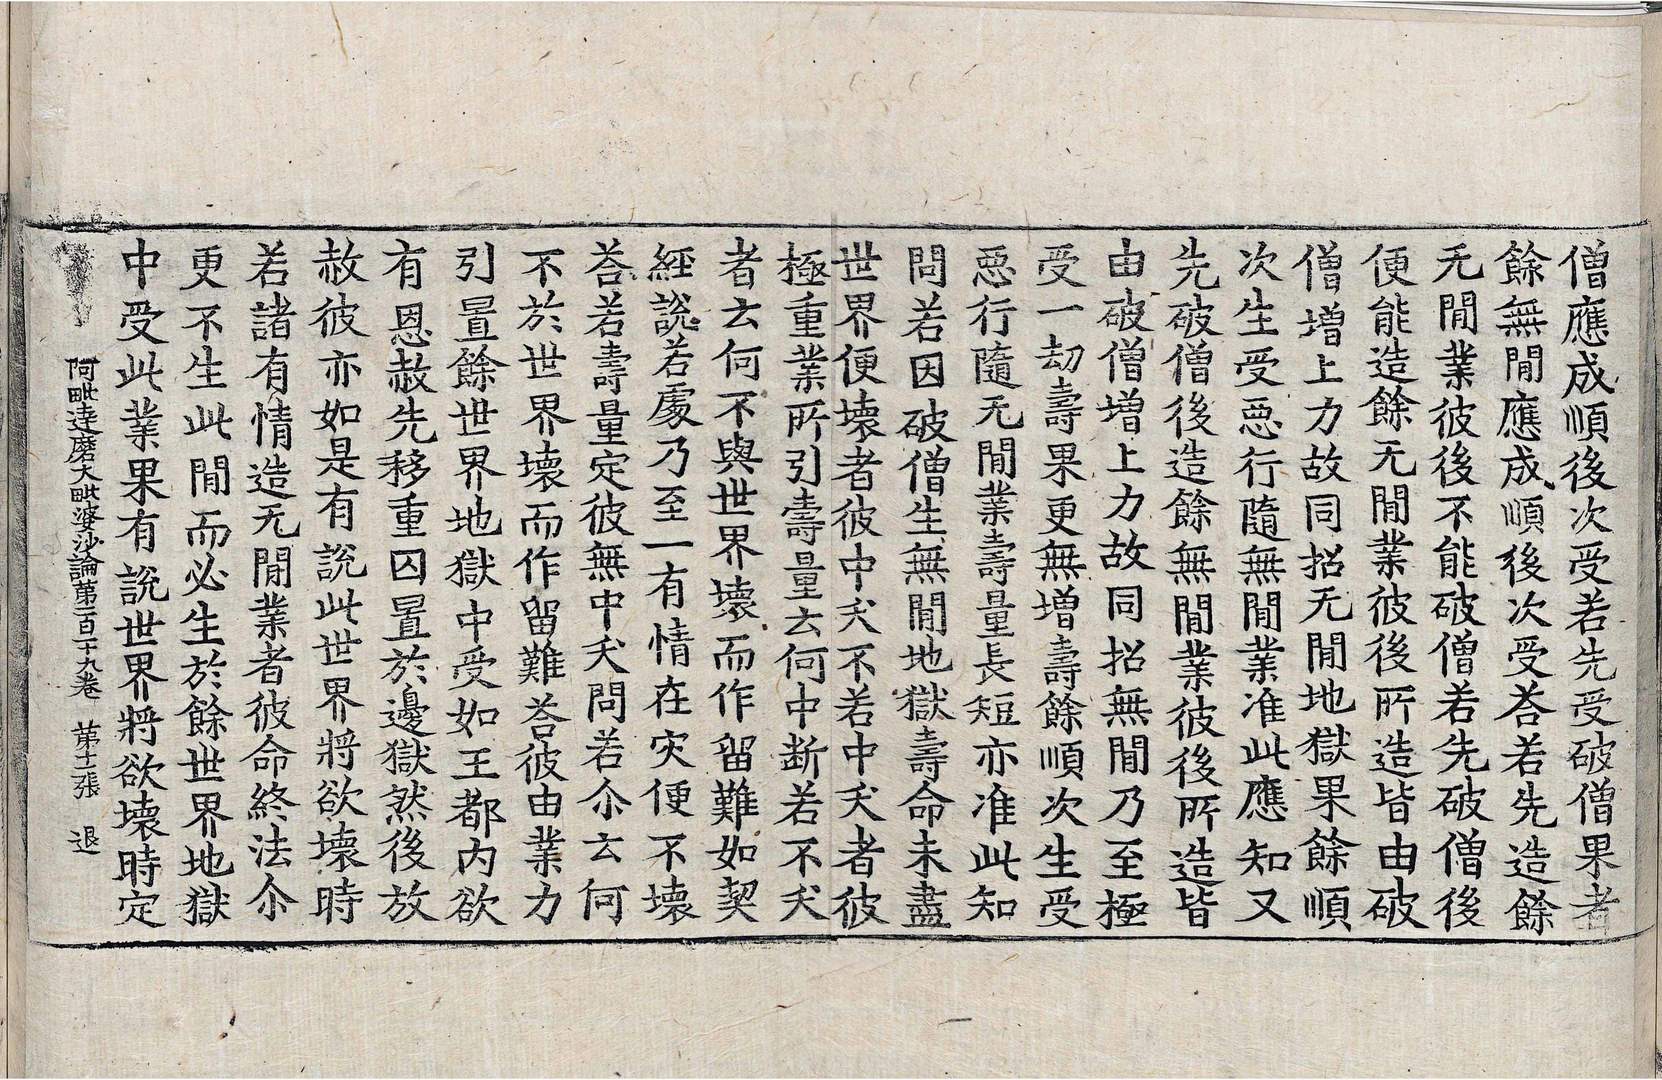 僧應成順後次受若先受破僧果者
餘無間應成順後次受荅若先造餘
无間業彼後不能破僧若先破僧後
便能造餘无間業彼後所造皆由破
僧增上力故同招无間地獄果餘順
次生受惡行隨無間業准此應知又
先破僧後造餘無間業彼後所造皆
由破僧增上力故同招無間乃至極
受一劫壽果更無增壽餘順次生受
惡行隨无間業壽量長短亦准此知
問若因破僧生無間地獄壽命未盡
世界便壞者彼中夭不若中夭者彼
極重業所引壽量云何中断若不夭
者云何不與世界壞而作留難如契
經說若處乃至一有情在灾便不壞
荅若壽量定彼無中夭問若尒云何
不於世界壞而作留難荅彼由業力
引置餘世界地獄中受如王都內欲
有恩赦先移重囚置於邊獄然後放
赦彼亦如是有說此世界將欲壞時
若諸有情造无間業者彼命終法尒
更不生此間而必生於餘世界地獄
中受此業果有說世界將欲壞時定
阿毗達磨大毗婆沙論第一百一十九卷 第十二張 退